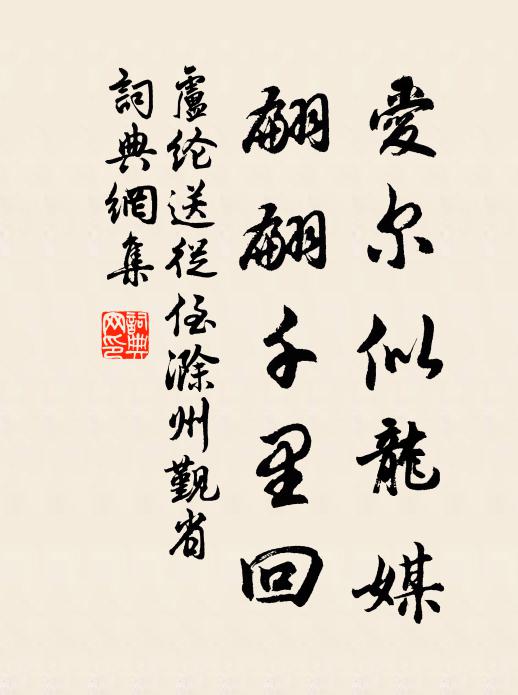 愛尔似龍媒
翩翩千里回
盧纶送從侄滁州覲省
詞典網集
詞典网印